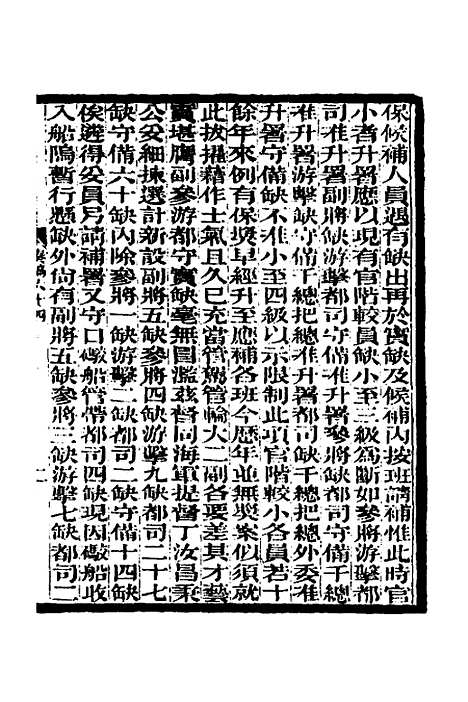 保候補人員遇有缺出再於實缺及候補內按班請補惟此時官
小者升署應以現有官階較員缺小至三級為斷如參將游擊都
司准升署副將缺游擊都司守備准升署參將缺都司守備千總
准升署游擊缺守備千總把總准升署都司缺千總把總外委准
升署守備缺不准小至四級以示限制此項官階較小各員若十
餘年來例有保獎早經升至應補各班今歷年並無獎案似須就
此拔擢藉作士氣且久已充當管駕管輪大二副各要差其才藝
實堪膺副參游都守實缺毫無冒濫茲督同海軍提督丁汝昌秉
公妥細揀選計新設副將五缺參將四缺游擊九缺都司二十七
缺守備六十缺內除參將一缺游擊二缺都司二缺守備十四缺
俟遴得妥員另請補署又守口礮船管帶都司四缺現因礮船收
入船隖暫行懸缺外尚有副將五缺參將三缺游擊七缺都司二